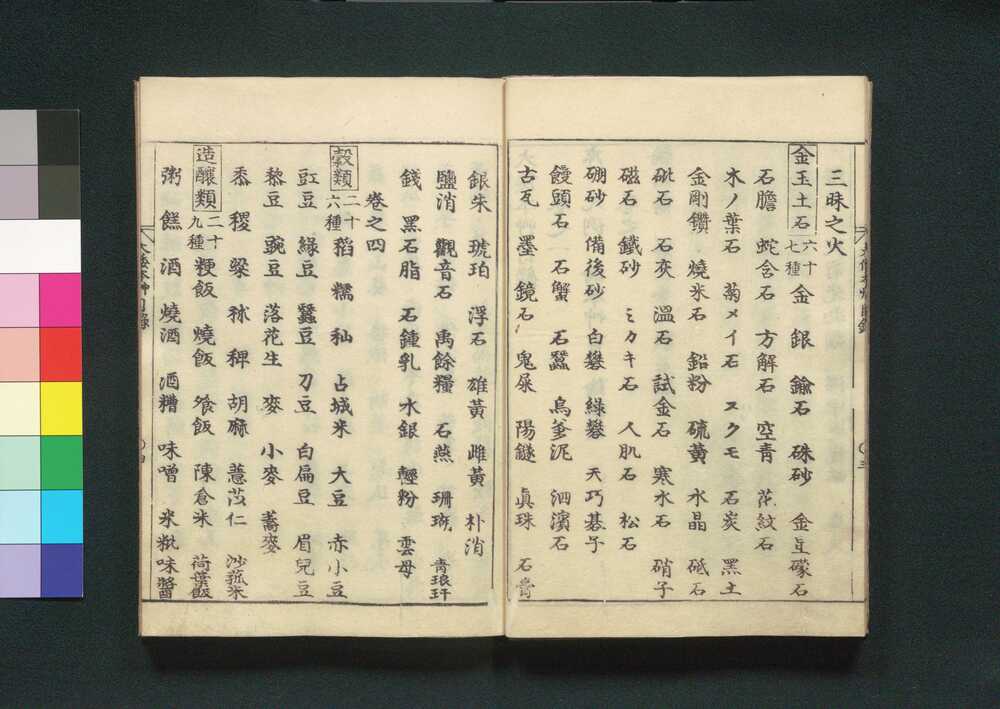 三昧之火
金玉土石 六十七種 金 銀 鍮石 硃砂 金星礞石
石膽 蛇含石 方解石 空青 花紋石
木ノ葉石 菊メイ石 スクモ 石炭 黑土
金剛鑽 燒米石 鉛粉 硫黄 水晶 砥石
砒石 石灰 溫石 試金石 寒水石 硝子
磁石 鐵砂 ミカキ石 人肌石 松石
硼砂 備後砂 白礬 綠礬 天巧碁子
饅頭石 石蟹 石蠶 烏爹泥 泗濱石
古瓦 墨 鏡石 鬼屎 陽鐩 眞珠 石膏
銀朱 琥珀 浮石 雄黄 雌黄 朴消
鹽消 觀音石 禹餘糧 石燕 珊瑚 青琅玕
錢 黑石脂 石鍾乳 水銀 輕粉 雲母
卷之四
穀類 二十六種 稻 糯 秈 占城米 大豆 赤小豆
豇豆 綠豆 蠶豆 刀豆 白扁豆 眉兒豆
黎豆 豌豆 落花生 麥 小麥 蕎麥
黍 稷 粱 秫 稗 胡麻 薏苡仁 沙菰米
造釀類 二十九種 粳飯 燒飯 飱飯 陳倉米 荷葉飯
粥 餻 酒 燒酒 酒糟 味噌 米粃味醬